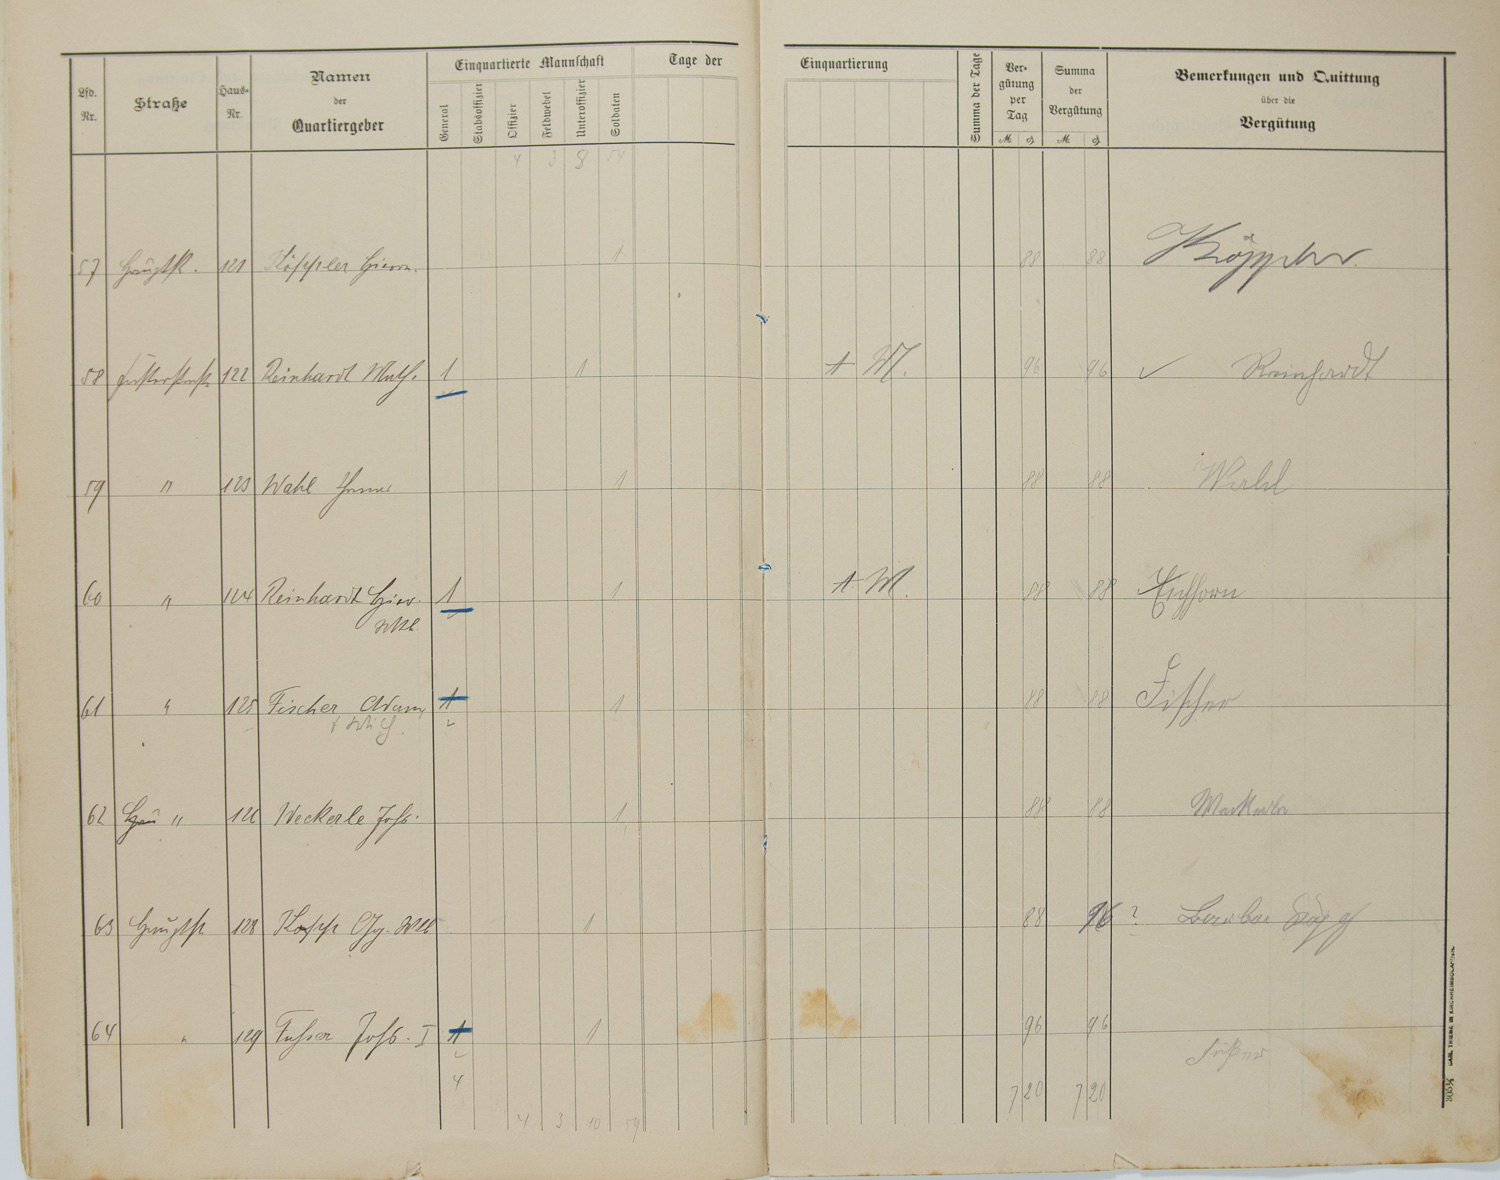 Lfd. Nr. Straße Haus-Nr. Namen der Quartiergeber Einquartierte Mannschaft Tage der Einquartierung Summa der Tage Vergütung per Tag Summa der Vergütung Bemerkungen und Quittung über die Vergütung
General Stabsoffizier Offizier Feldwebel Unteroffizier Soldaten M. ₰ M. ₰
4 3 8 54
57 Hauptstr. 121 1 88 88
58 122 Reinhardt Math. 1 1 1 M. 96 96 ✓ Reinhardt
59 " 123 Wahl 1 88 88 Wahl
60 " 124 Reinhardt 1 1 1 M. 88 88 Eichhorn
Wtb
61 " 125 Fischer Adam 1 1 88 88 Fischer
62 " 126 Weckerle Johs. 1 88 88 Weckerle
63 Hauptstr 128 Wtb 1 88 96 ?
64 " 129 Johs. I 1 1 96 96
4 7 20 7 20
4 3 10 59
3053½ CARL THIEME IN KIRCHHEIMBOLANDEN.